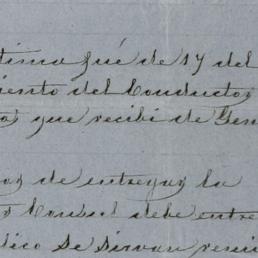 tima fué de 17 del
iento del Conductor
os que recibi de Gen
os de entregar la
Consul debe entre
dico Se Sirvan remi